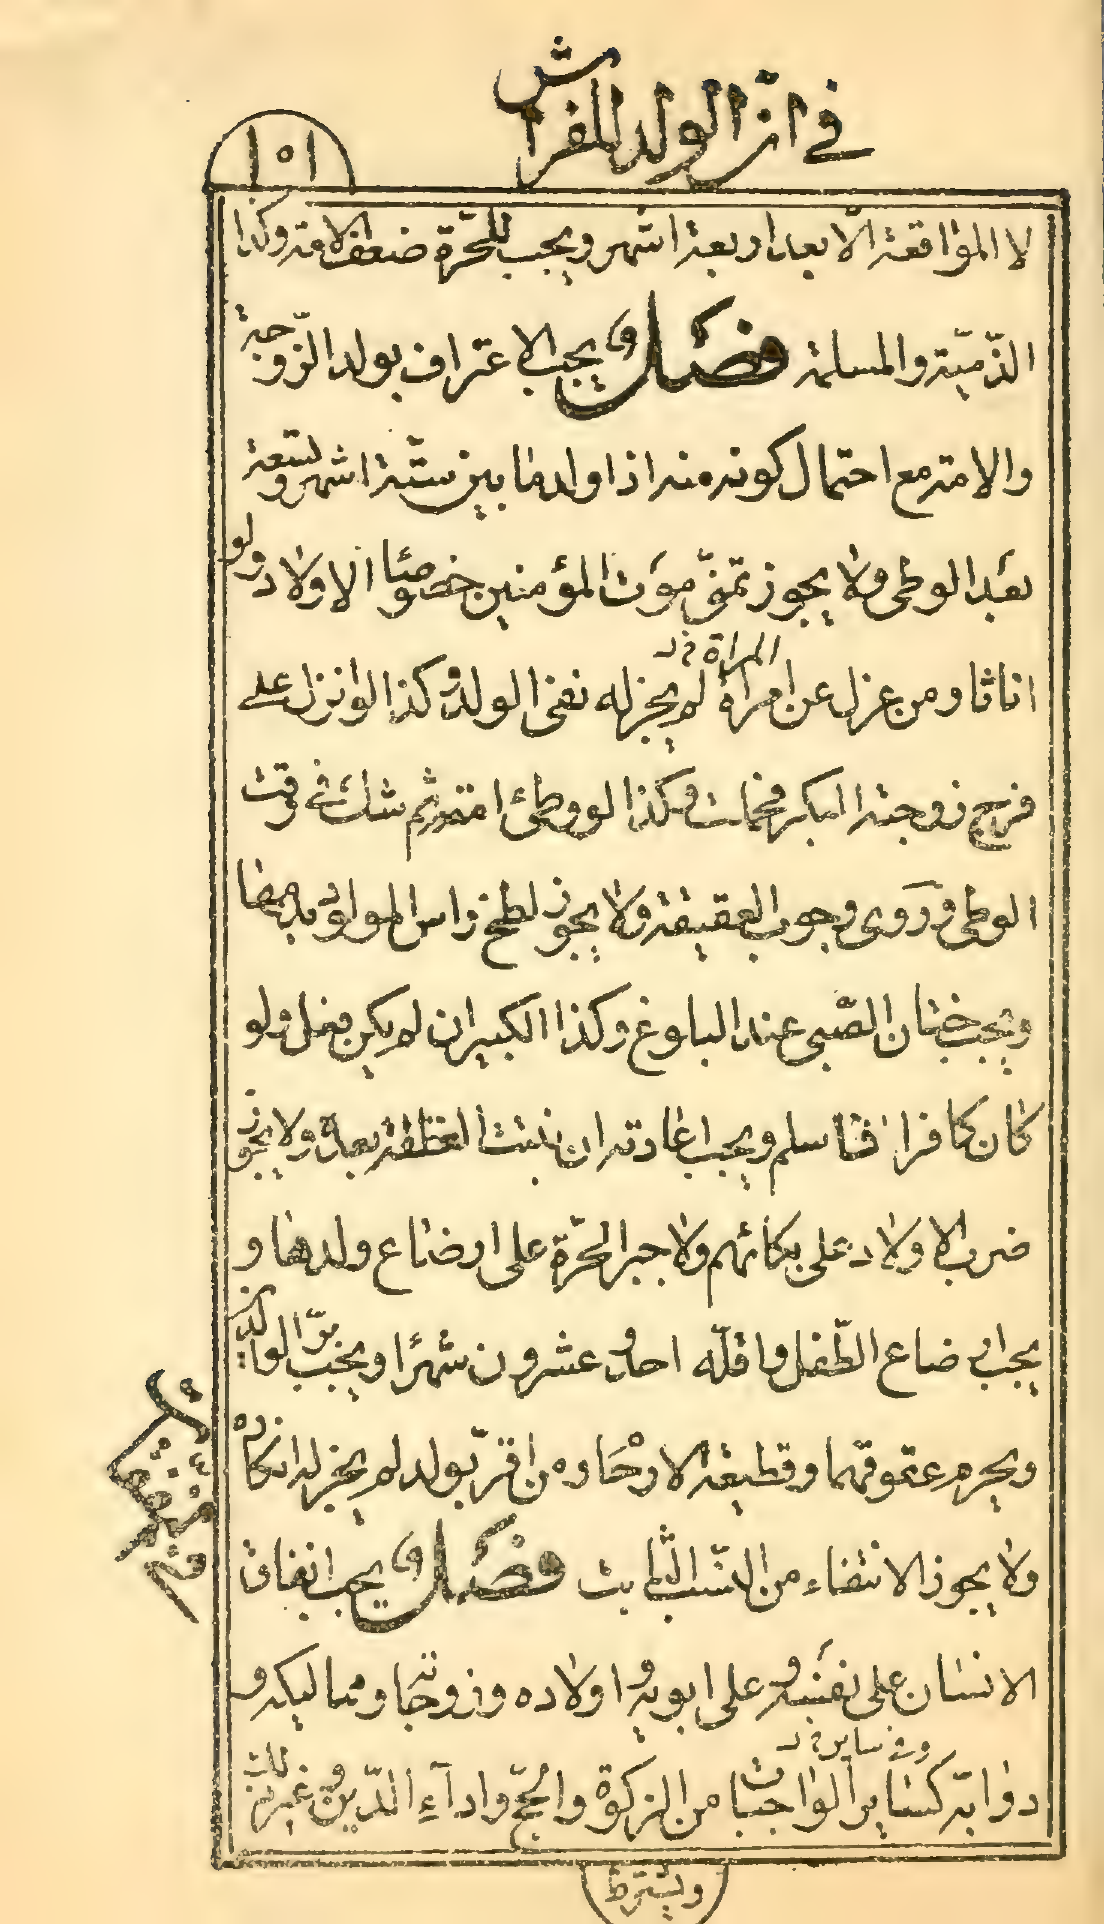 في ان الولد للفراش
١٥١
لا المواقعة الا بعد اربعة اشهر ويجب للحرّة ضعف الامة وكذا
الذّميّة والمسلمة فصل يجب الاعتراف بولد الزّوجة
والامة مع احتمال كونه منه اذا ولد ما بين ستّة اشهر وتسعة
بعد الوطى ولا يجوز تمنّى موت المؤمنين خصوصا الاولاد ولو
المراة خ د
اناثا ومن عزل عن امراة لم يجز له نفى الولد وكذا لو انزل على
فرج زوجته البكر فحملت وكذا لو وطئ امته ثم شك في وقت
الوطى وروى وجوب العقيقة ولا يجوز لطخ راس المولود بدمها
ويجب ختان الصّبى عند البلوغ وكذا الكبير ان لم يكن فعل ولو
كان كافرا فاسلم ويجب اعادته ان نبتت الغلفة بعده ولا يجوز
ضرب الاولاد على بكائهم ولا جبر الحرّة على ارضاع ولدها و
يجب ارضاع الطّفل واقلّه احد وعشرون شهرا ويجب برّ الوالدين
ويحرم عقوقهما وقطيعة الارحام ومن اقرّ بولد لم يجز له انكاره
ولا يجوز الانتفاء من النّسب الثابت فصل يجب انفاق
الانسان على نفسه وعلى ابويه واولاده وزوجاته ومماليكه و
وفي ساير خ د
دوابّه كساير الواجبات من الزكوة والحجّ واداء الدّين وغير ذلك
ويشترط